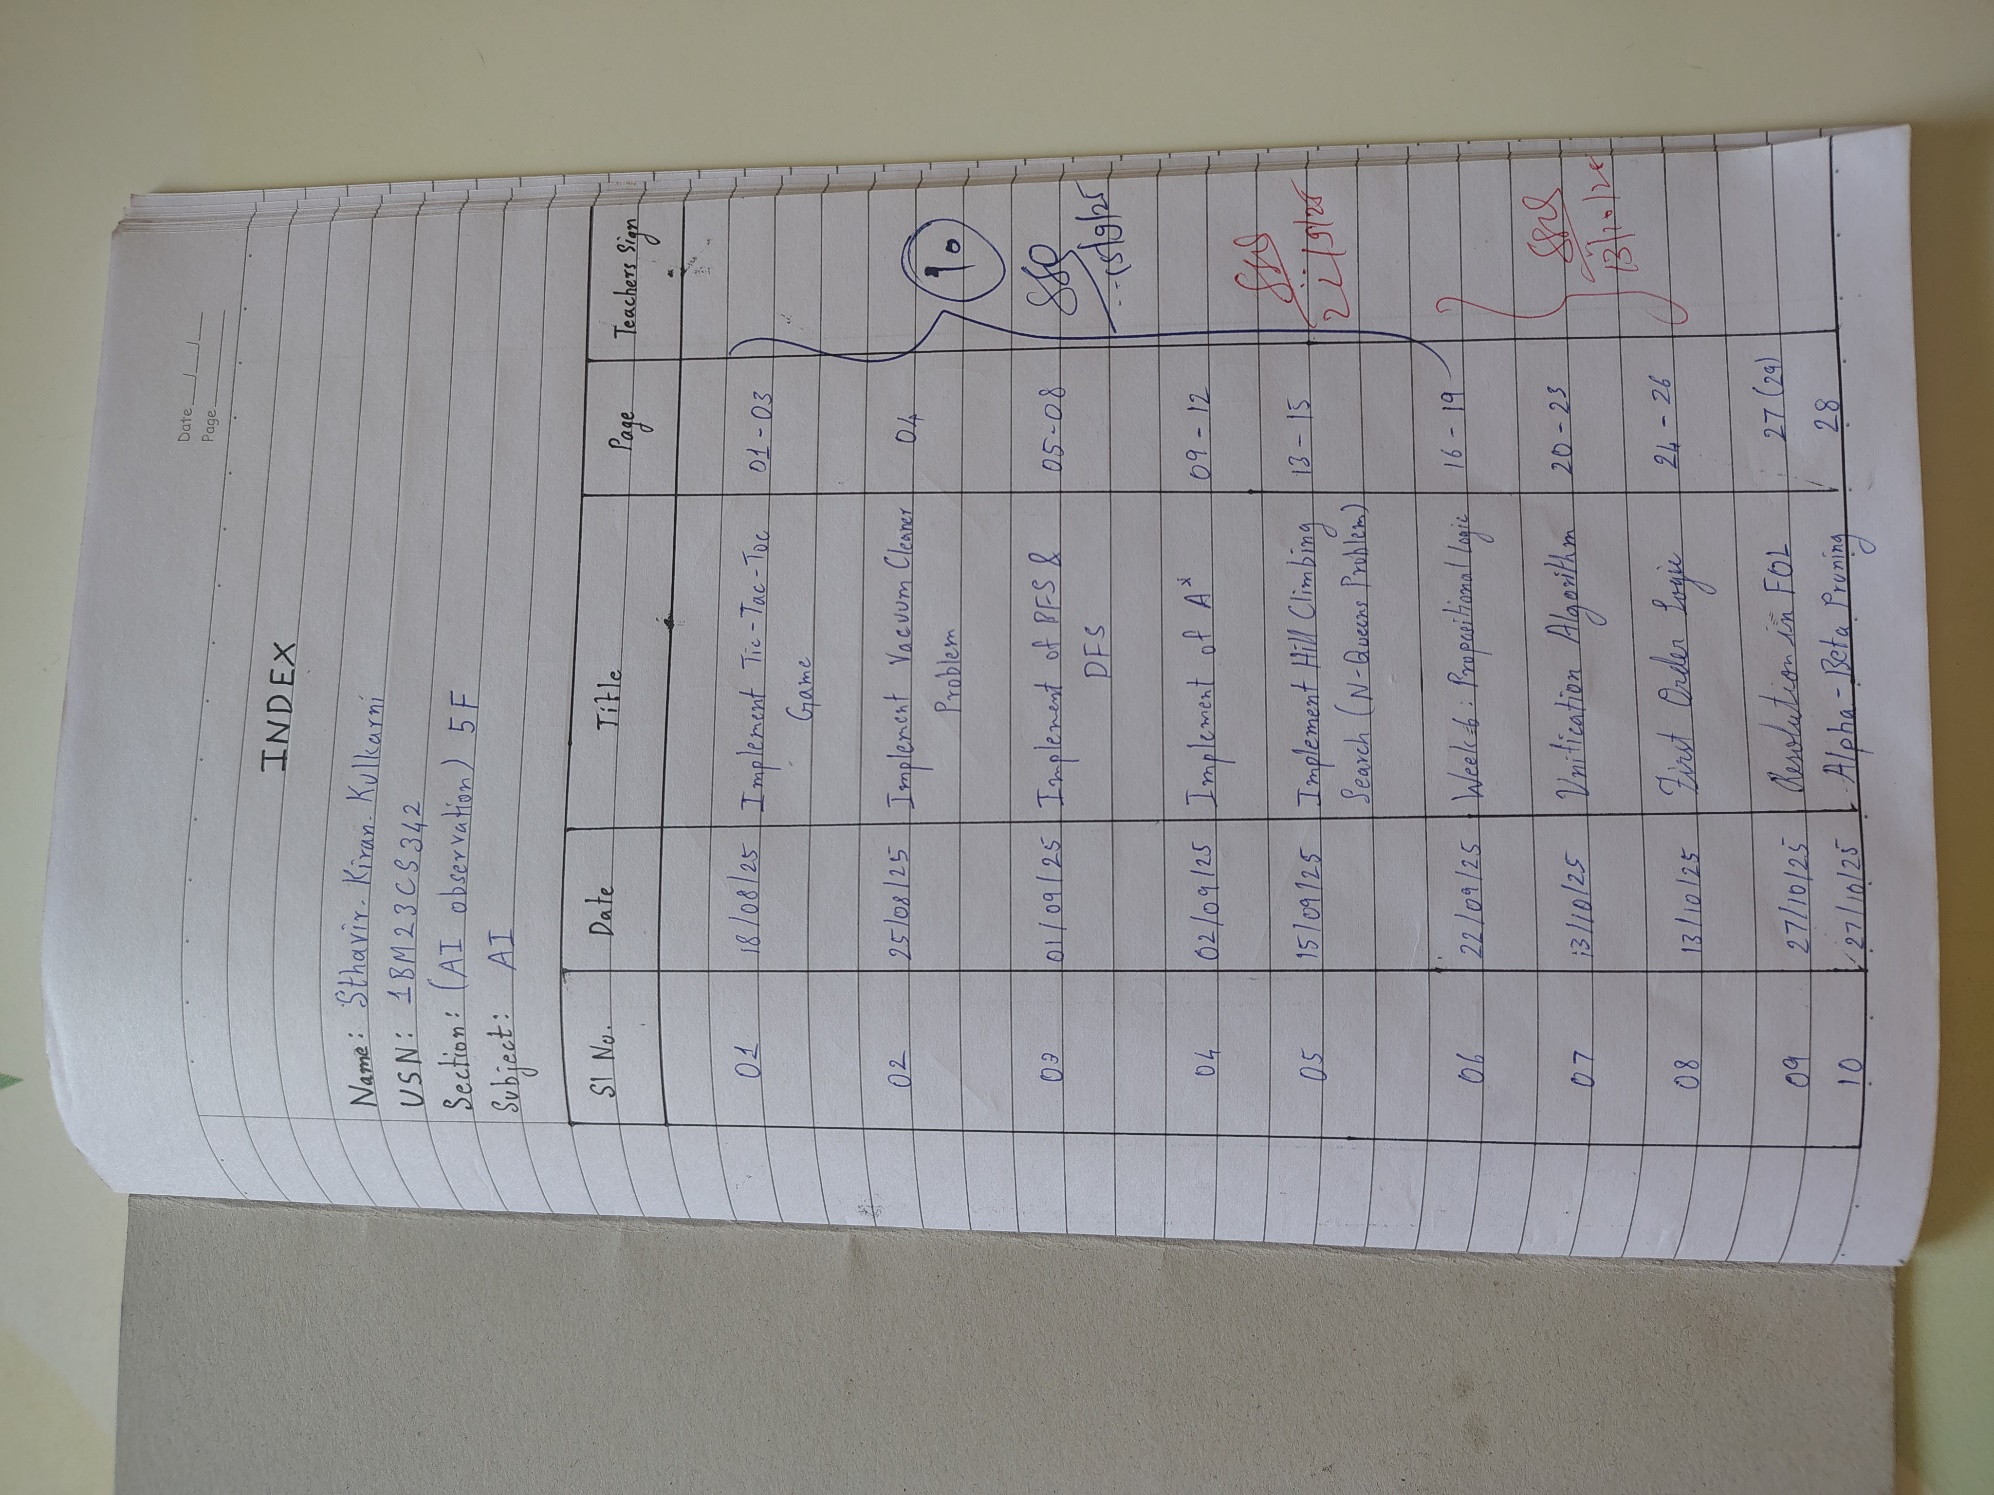 Date __/__/__
Page ____
INDEX
Name: Sthavir. Kiran. Kulkarni
USN: 1BM23CS342
Section: (AI observation) 5F
Subject: AI
Sl No. Date Title Page Teachers Sign
01 18/08/25 Implement Tic-Tac-Toc 01-03
Game
02 25/08/25 Implement Vacuum Cleaner 04
Problem
10
03 01/09/25 Implement of BFS & 05-08
DFS
15/9/25
04 02/09/25 Implement of A* 09-12
05 15/09/25 Implement Hill Climbing 13-15
Search (N-Queens Problem)
22/9/25
06 22/09/25 Week-6: Propositional logic 16-19
07 13/10/25 Unification Algorithm 20-23
13/10/25
08 13/10/25 First Order Logic 24-26
09 27/10/25 Resolution in FOL 27 (29)
10 27/10/25 Alpha-Beta Pruning 28